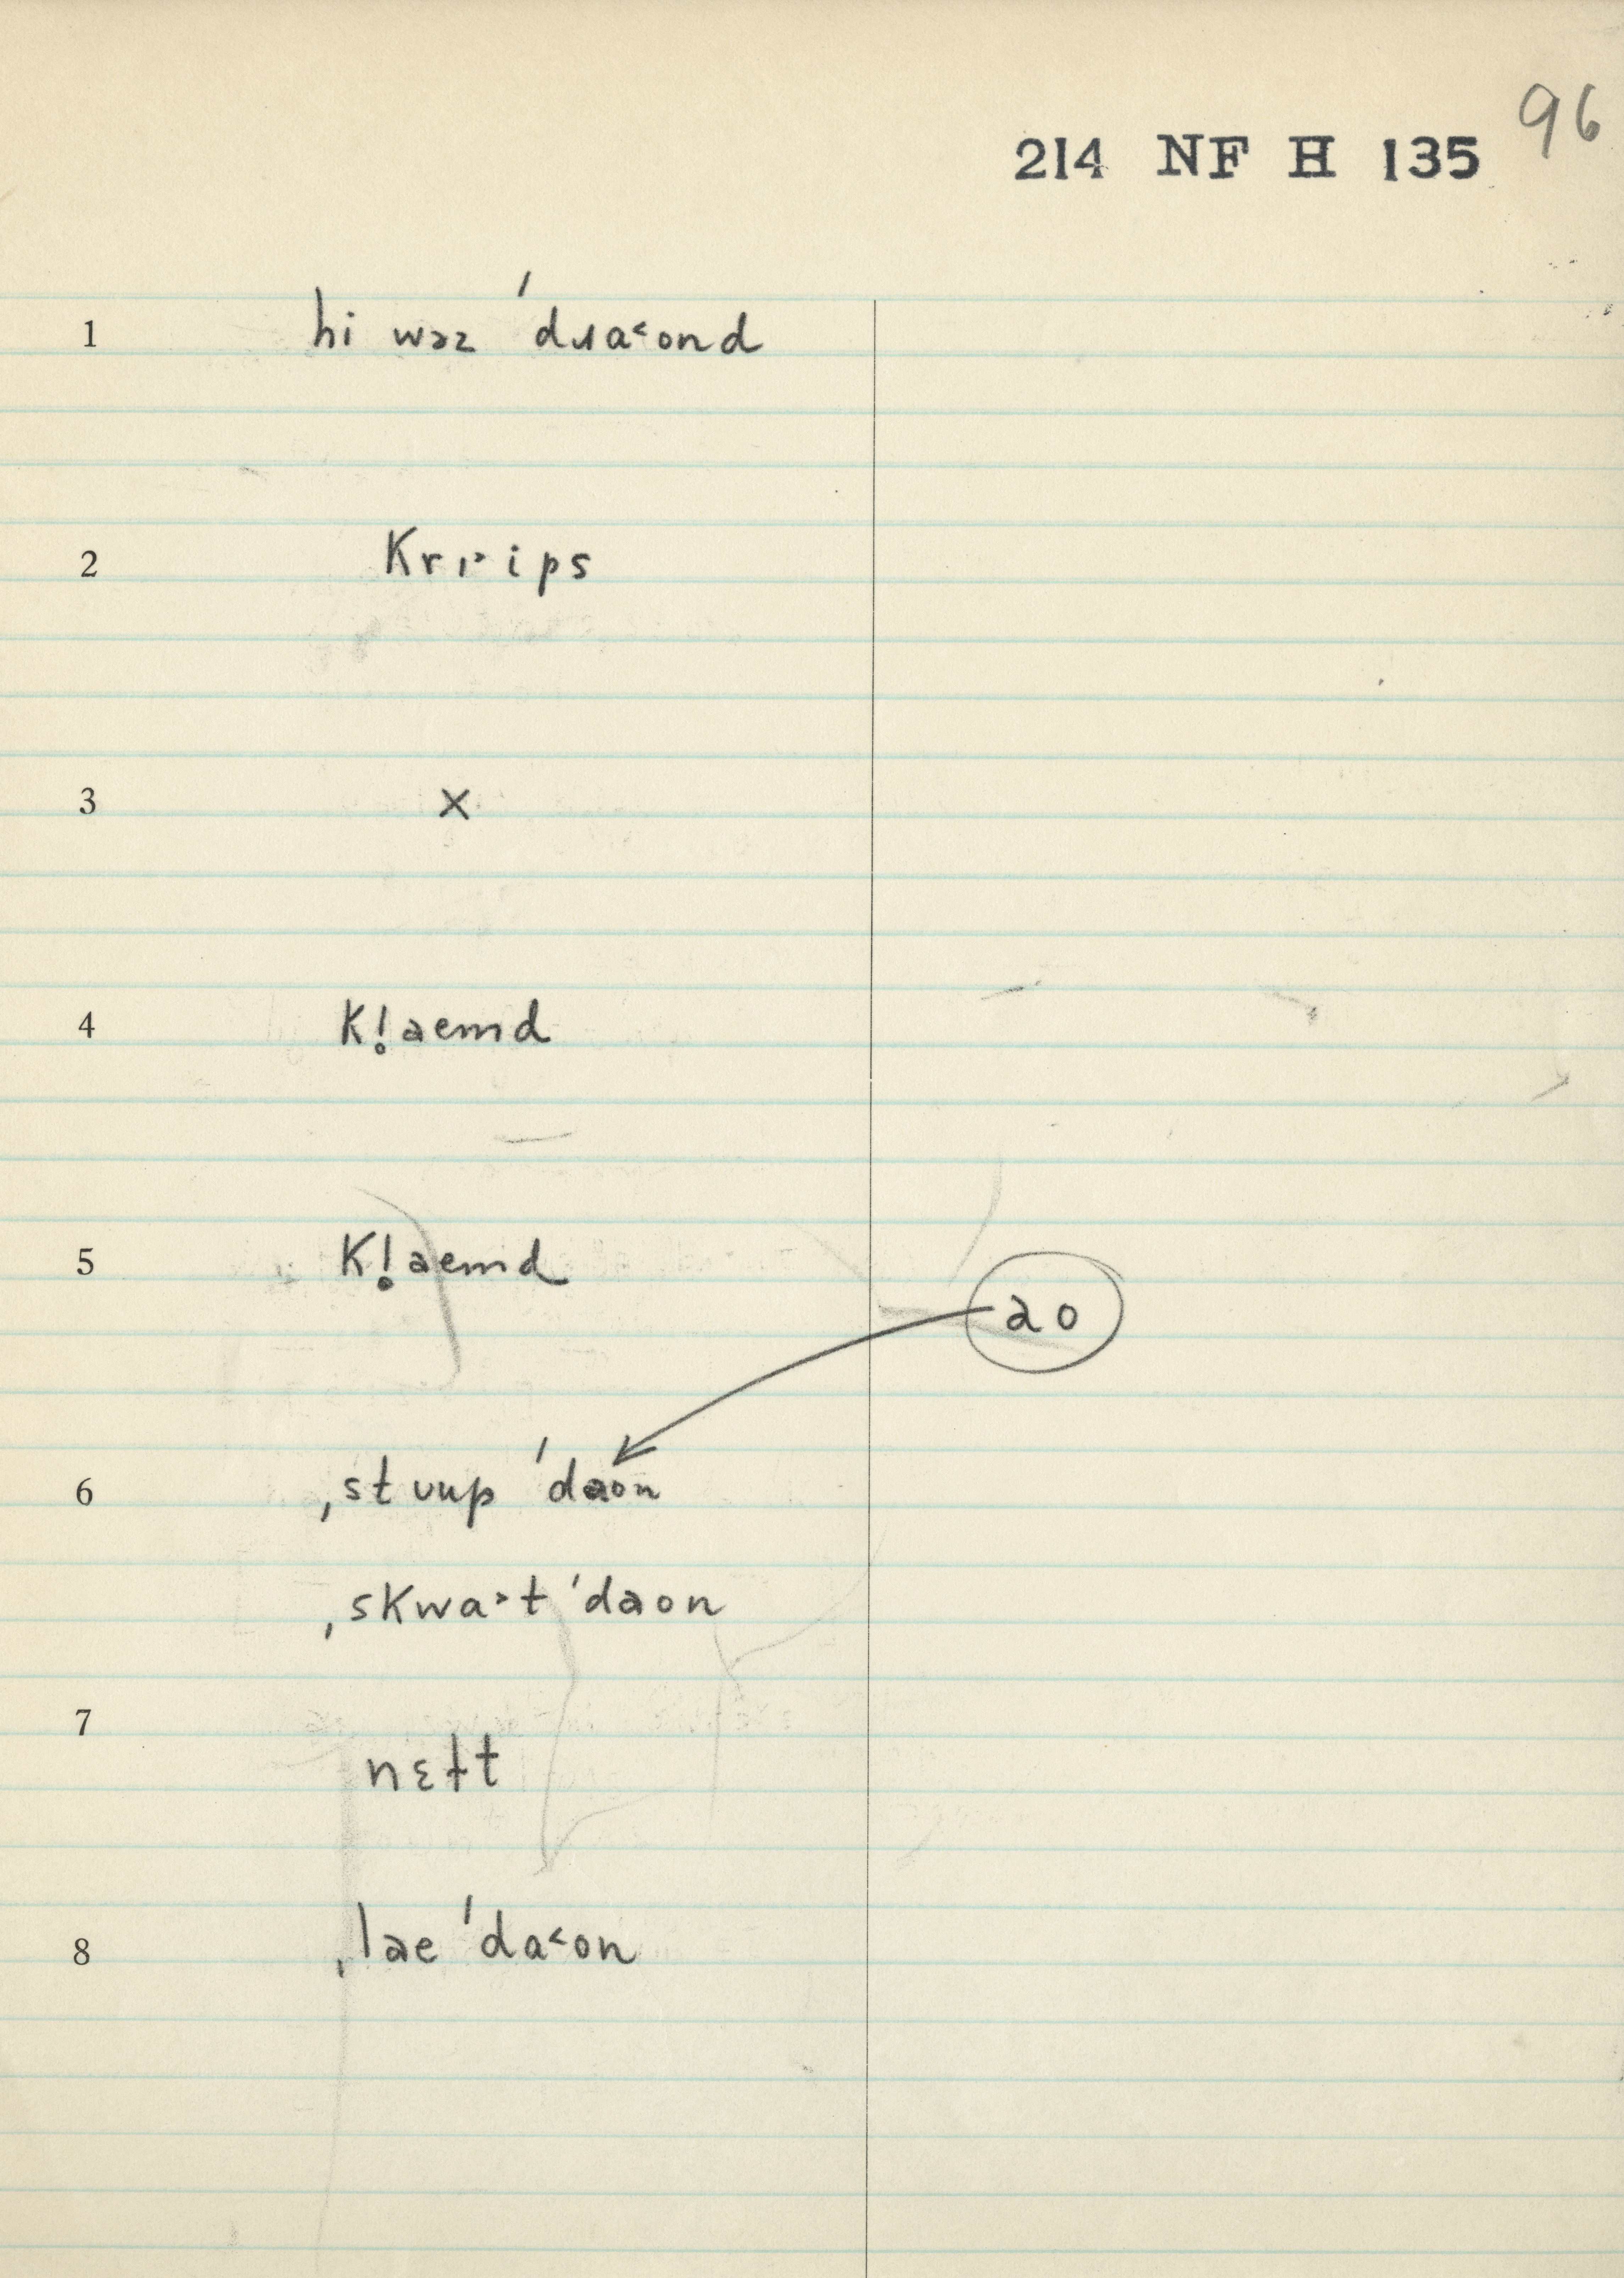 96
214 NF H 135
1 hi wəz ˈdɹa˂ond
2 Krɪ˃ips
3 ×
4 Kl̥aemd
5 Kl̥aemd
ao
6 ˌstuup ˈdaon
ˌskwa˃t ˈdaon
7 nɛɫt
8 ˌlae ˈda˂on